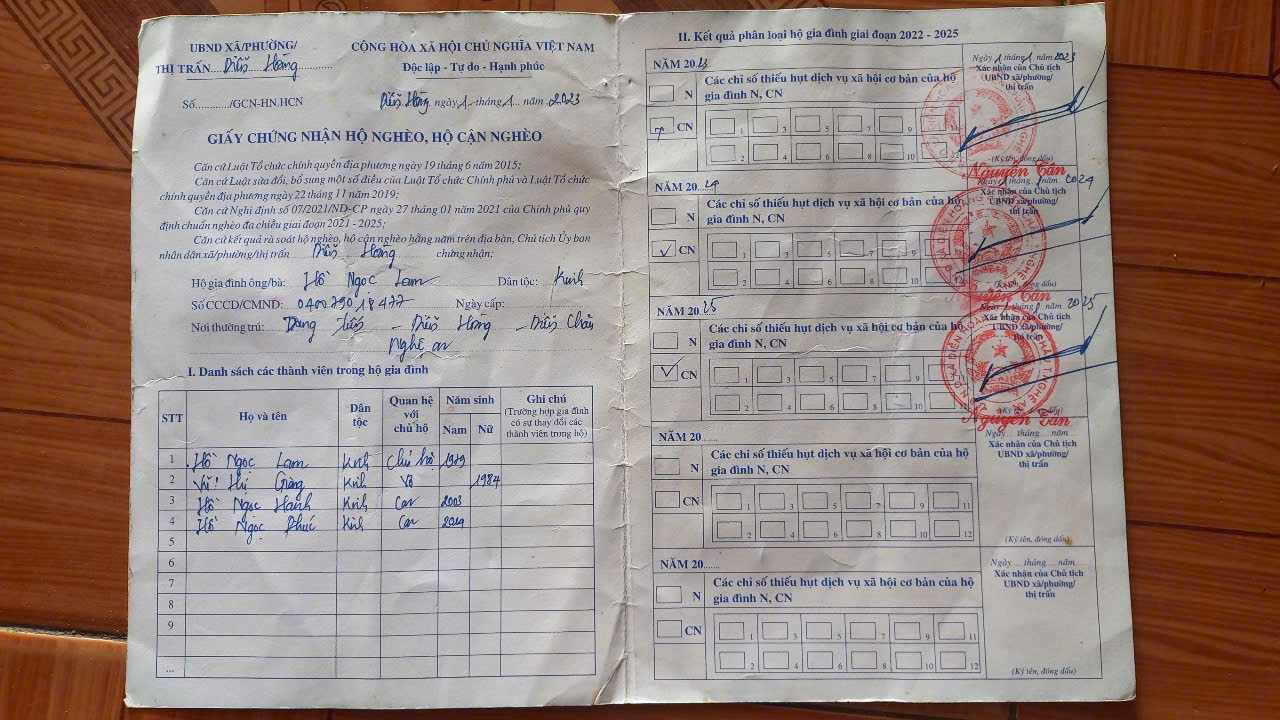 UBND XÃ/PHƯỜNG/
THỊ TRẤN....Diễn Hoàng
CỘNG HÒA XÃ HỘI CHỦ NGHĨA VIỆT NAM
Độc lập - Tự do - Hạnh phúc
Số............/GCN-HN.HCN
Diễn Hoàng ngày 1 tháng 1 năm 2023
GIẤY CHỨNG NHẬN HỘ NGHÈO, HỘ CẬN NGHÈO
Căn cứ Luật Tổ chức chính quyền địa phương ngày 19 tháng 6 năm 2015;
Căn cứ Luật sửa đổi, bổ sung một số điều của Luật Tổ chức Chính phủ và Luật Tổ chức
chính quyền địa phương ngày 22 tháng 11 năm 2019;
Căn cứ Nghị định số 07/2021/NĐ-CP ngày 27 tháng 01 năm 2021 của Chính phủ quy
định chuẩn nghèo đa chiều giai đoạn 2021 - 2025;
Căn cứ kết quả rà soát hộ nghèo, hộ cận nghèo hằng năm trên địa bàn, Chủ tịch Ủy ban
nhân dân xã/phường/thị trấn Diễn Hoàng chứng nhận:
Hộ gia đình ông/bà: Hồ Ngọc Lam Dân tộc: Kinh
Số CCCD/CMND: Ngày cấp:
Nơi thường trú: - Diễn Hoàng - Diễn Châu
Nghệ an
I. Danh sách các thành viên trong hộ gia đình
STT Họ và tên Dân tộc Quan hệ với chủ hộ Năm sinh Nam Nữ Ghi chú (Trường hợp gia đình có sự thay đổi các thành viên trong hộ)
1 Hồ Ngọc Lam Kinh Chủ hộ 1979
2 Thị Giang Kinh Vợ 1984
3 Hồ Ngọc Hanh Kinh Con 2003
4 Hồ Ngọc Phúc Kinh Con 2019
5
6
7
8
9
...
II. Kết quả phân loại hộ gia đình giai đoạn 2022 - 2025
NĂM 2023
N
CN
Các chỉ số thiếu hụt dịch vụ xã hội cơ bản của hộ
gia đình N, CN
1 3 5 7 9 11
2 4 6 8 10 12
Ngày 1 tháng 1 năm 2023
Xác nhận của Chủ tịch
UBND xã/phường/
thị trấn
(Ký tên, đóng dấu)
Nguyễn Tấn
NĂM 2024
N
CN
Các chỉ số thiếu hụt dịch vụ xã hội cơ bản của hộ
gia đình N, CN
1 3 5 7 9
2 4 6 8 10
Ngày 1 tháng 1 năm 2024
Xác nhận của Chủ tịch
UBND xã/phường/
thị trấn
(Ký tên, đóng dấu)
Nguyễn Tấn
NĂM 2025
N
CN
Các chỉ số thiếu hụt dịch vụ xã hội cơ bản của hộ
gia đình N, CN
1 3 5 7 9
2 4 6 8 10
năm 2025
Xác nhận của Chủ tịch
UBND xã/phường/
thị trấn
(Ký tên, đóng dấu)
Nguyễn Tấn
NĂM 20......
N
CN
Các chỉ số thiếu hụt dịch vụ xã hội cơ bản của hộ
gia đình N, CN
1 3 5 7 9 11
2 4 6 8 10 12
Ngày.... tháng.... năm....
Xác nhận của Chủ tịch
UBND xã/phường/
thị trấn
(Ký tên, đóng dấu)
NĂM 20......
N
CN
Các chỉ số thiếu hụt dịch vụ xã hội cơ bản của hộ
gia đình N, CN
1 3 5 7 9 11
2 4 6 8 10 12
Ngày.... tháng.... năm....
Xác nhận của Chủ tịch
UBND xã/phường/
thị trấn
(Ký tên, đóng dấu)